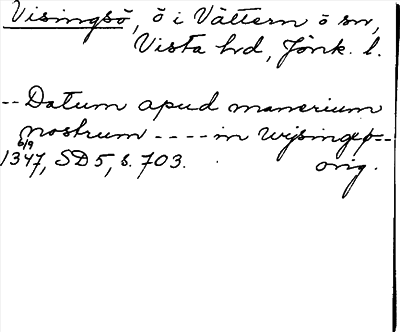 Visingsö, ö i Vättern ö sn,
Vista hd, Jönk. l.
-- Datum apud manerium
nostrum ---- in Wijsingxø--
6/9
1347, SD 5, s. 703. orig.